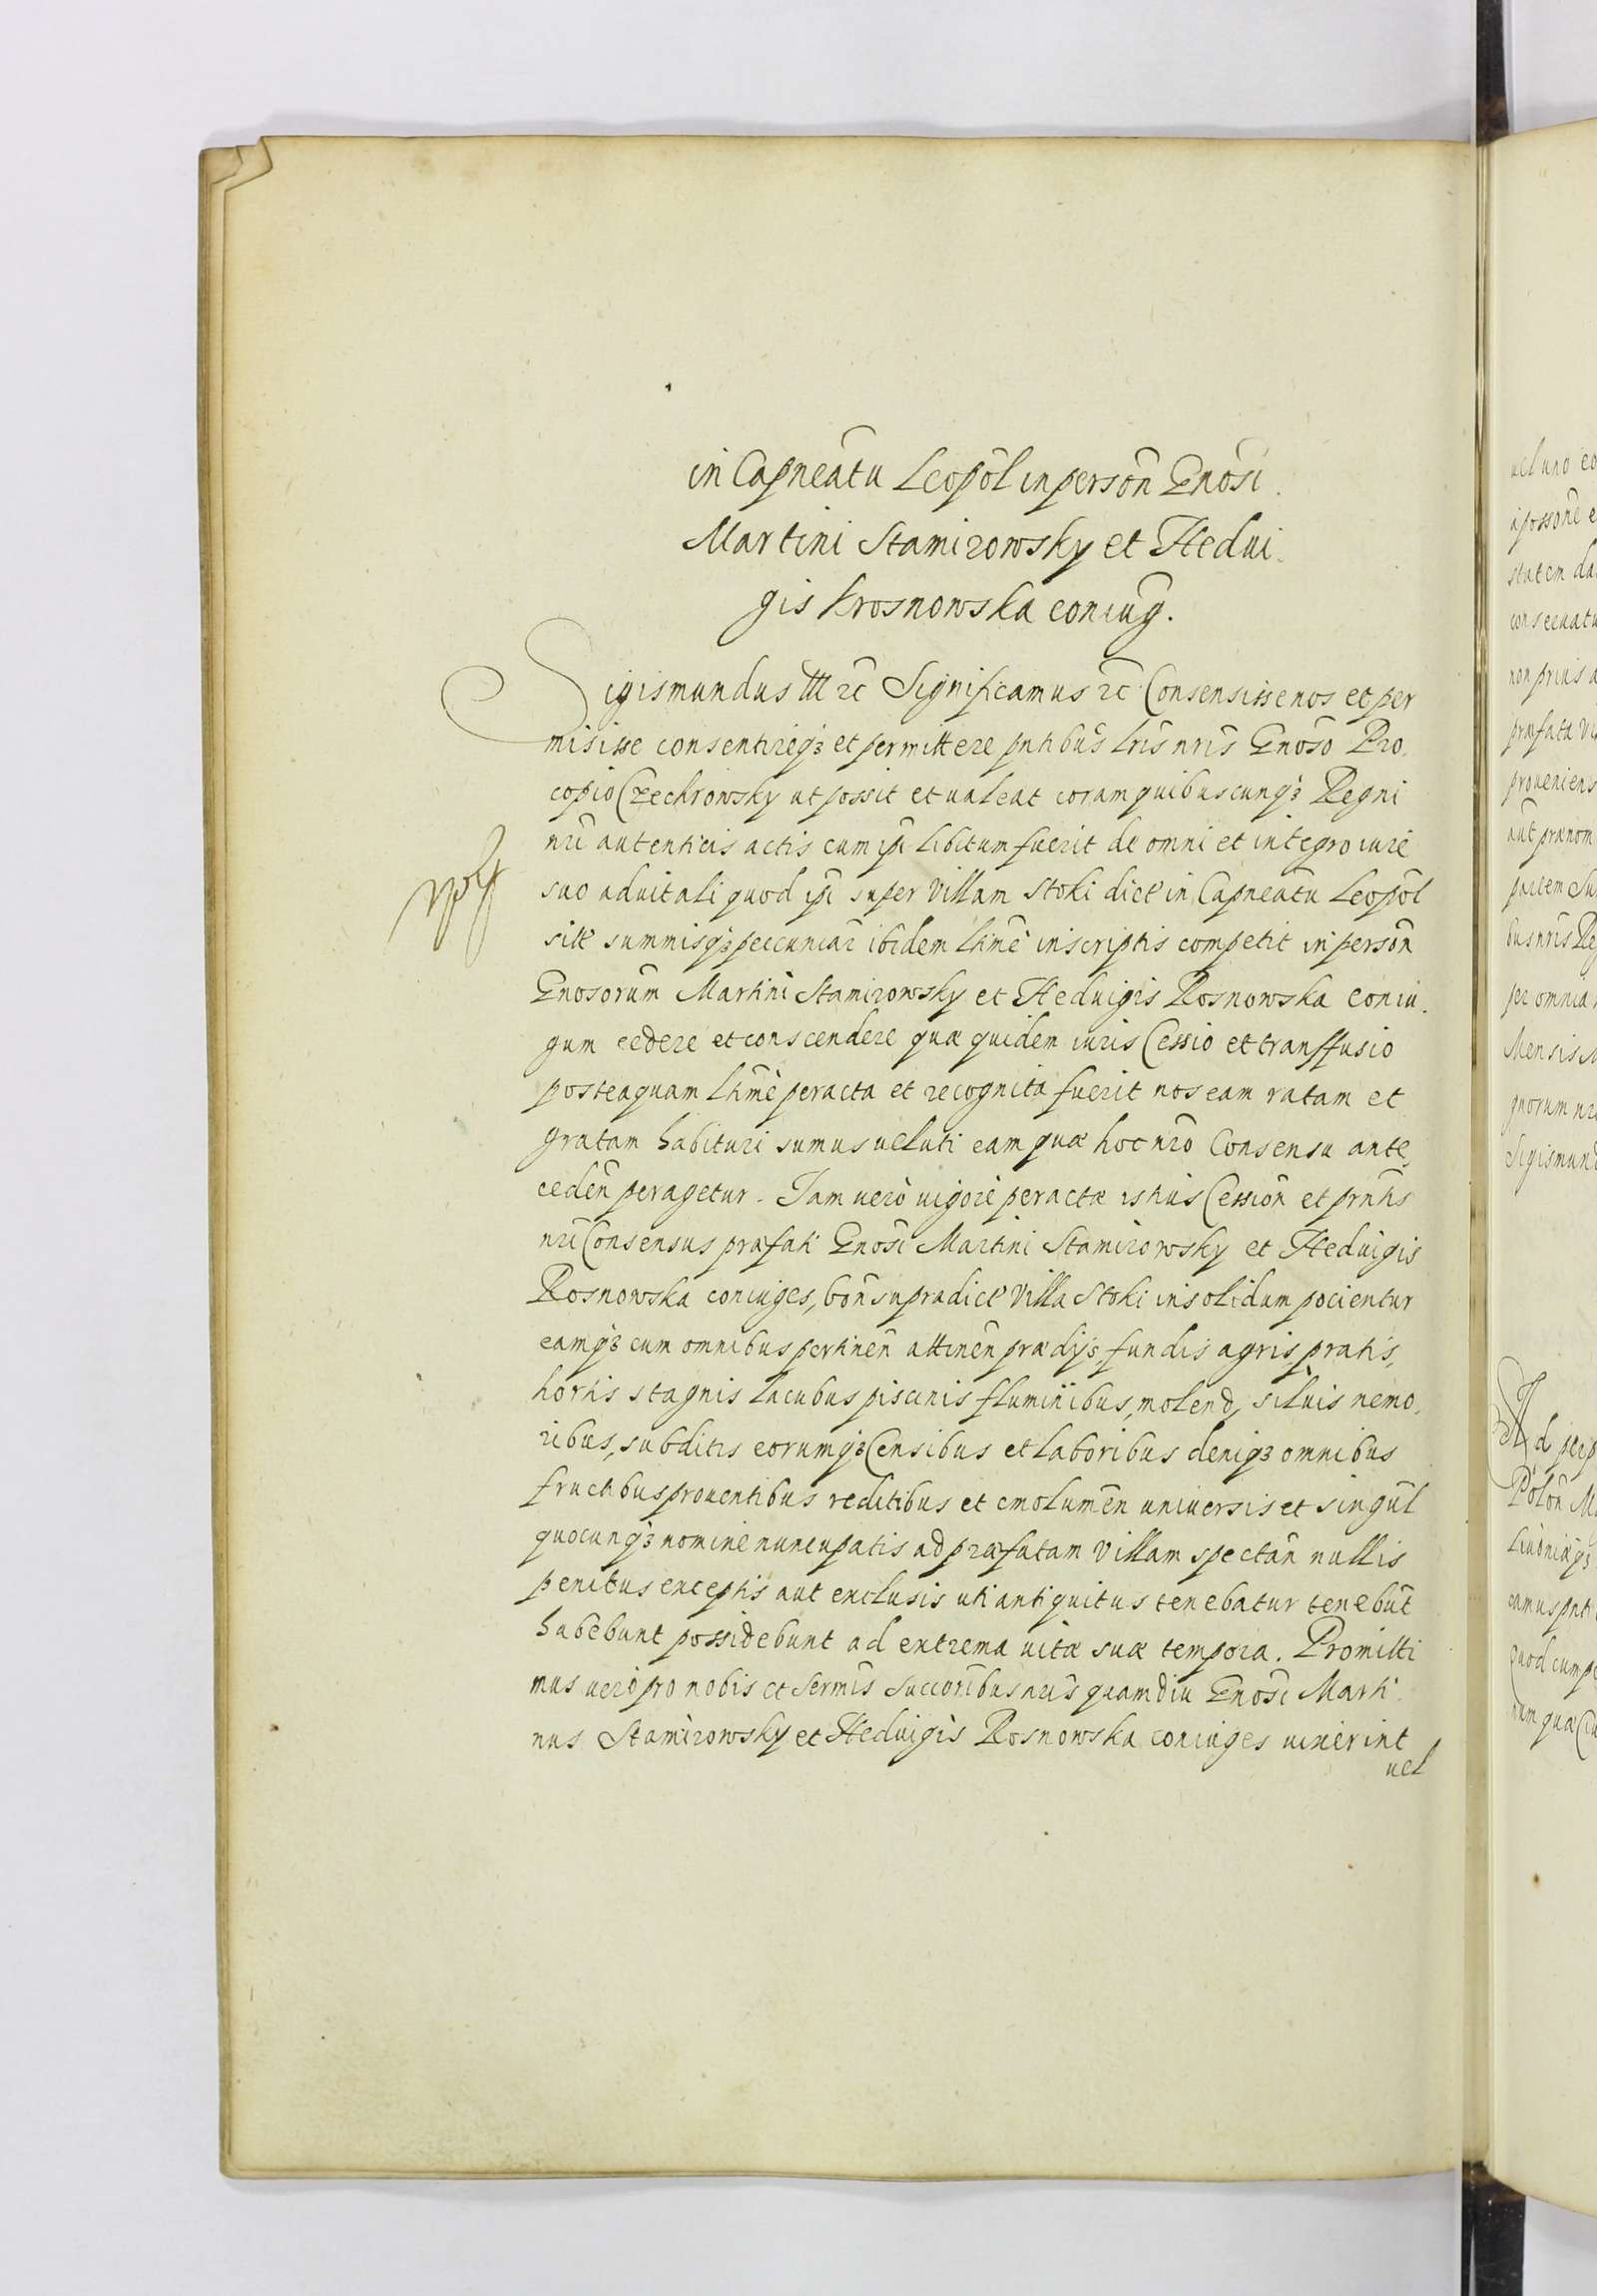 in Capneatu Leopol in person Gnosi
Martini Stamirowsky et Hedui
gis Krosnowska coniug.
Sigismundus III etc Significamus etc Consensisse nos et per
misisse consentireqȝ et permittere pntibus lris nris Gnoso Pro
copio Czechrowsky ut possit et ualeat coram quibuscunqȝ Regni
nri autenticis actis cum ipi libitum fuerit de omni et integro iure
suo aduitali quod ipi super Villam Stoki dict in Capneatu Leopol
sitt summisqȝ peccuniar ibidem lhme inscriptis competit in person
Gnosorum Martini Stamirowsky et Heduigis Rosnowska coniu
gum cedere et conscendere quæ quidem iuris Cessio et transfusio
posteaquam lhmè peracta et recognita fuerit nos eam ratam et
gratam habituri sumus ueluti eam quæ hoc nro Consensu ante
ceden peragetur. Jam uerò uigore peractæ istius Cession et prntis
nri Consensus præfati Gnosi Martini Stamirowsky et Heduigis
Rosnowska coniuges, bon supradict Villa Stoki insolidum pocientur
eamqȝ cum omnibus pertinen attinen prædijs, fundis agris pratis,
hortis stagnis lacubus piscinis fluminibus, molend, siluis nemo
ribus, subditis eorumqȝ Censibus et laboribus deniqȝ omnibus
fructibus prouentibus reditibus et emolumen uniuersis et singul
quocunqȝ nomine nuncupatis ad præfatam Villam spectan nullis
penitus exceptis aut exclusis uti antiquitus tenebatur tenebut
habebunt possidebunt ad extrema uitæ suæ tempora. Promitti
mus uerò pro nobis et Sermis Succoribus nris quamdiu Gnosi Marti
nus Stamirowsky et Heduigis Rosnowska coniuges uixerint
uel